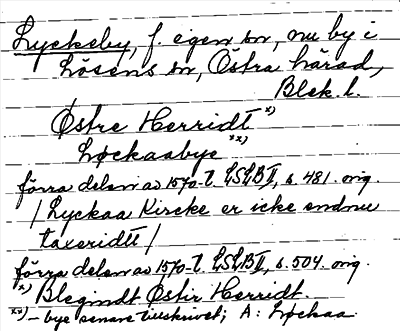 Lyckeby, f. egen sn, nu by i
Lösens sn, Östra härad,
Blek. l.
Østre Herridt x)
Løckaabye xx)
förra delen av 1570-t. LSLB II, s. 481. orig.
/ Lyckaa Kircke er icke endnu
taxeridtt /
förra delen av 1570-t. LSLB II, s. 504. orig.
x) Blegindt Østir Herridt.
xx) – bye senare tillskrivet; A: Løckaa